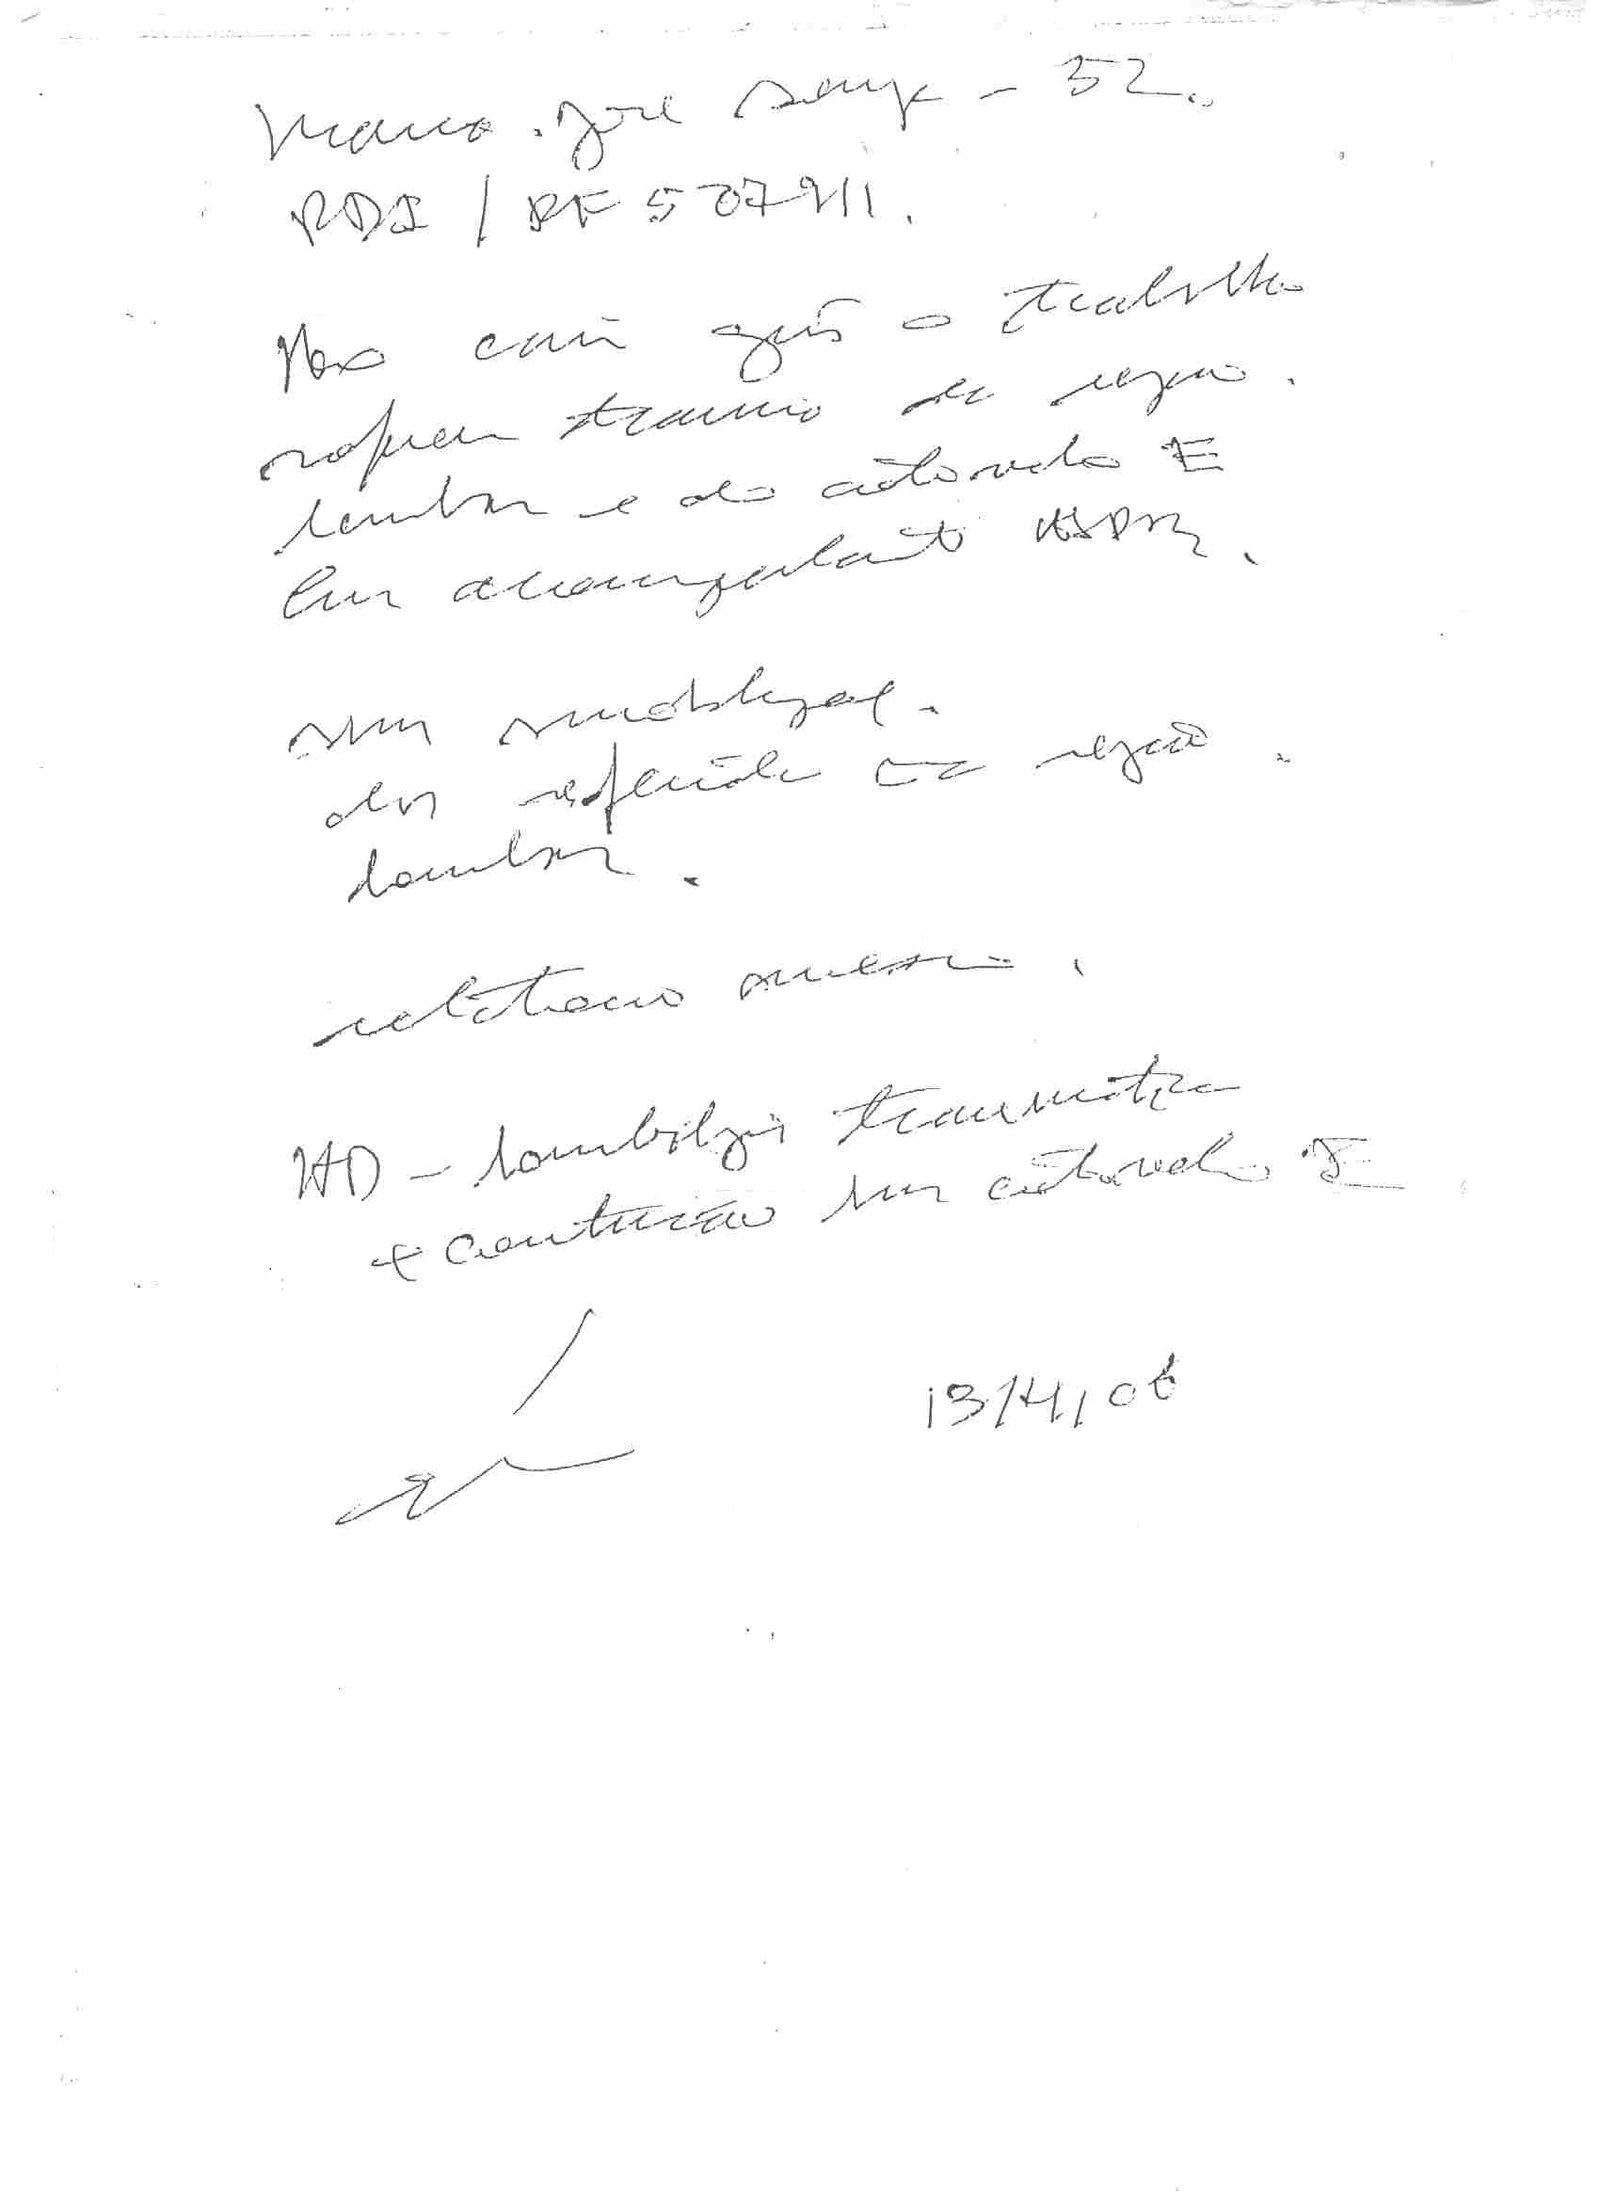 Maria José Souza - 52
PDI / RF 507911.
Ao cair após o trabalho
sofreu trauma de região
lombar e do cotovelo E
Em acompanhante HSPM.
sem imobilização.
dor referida na região
lombar.
relatório anexo.
HD - lombalgia traumática
+ contusão em cotovelo E
13/4/06